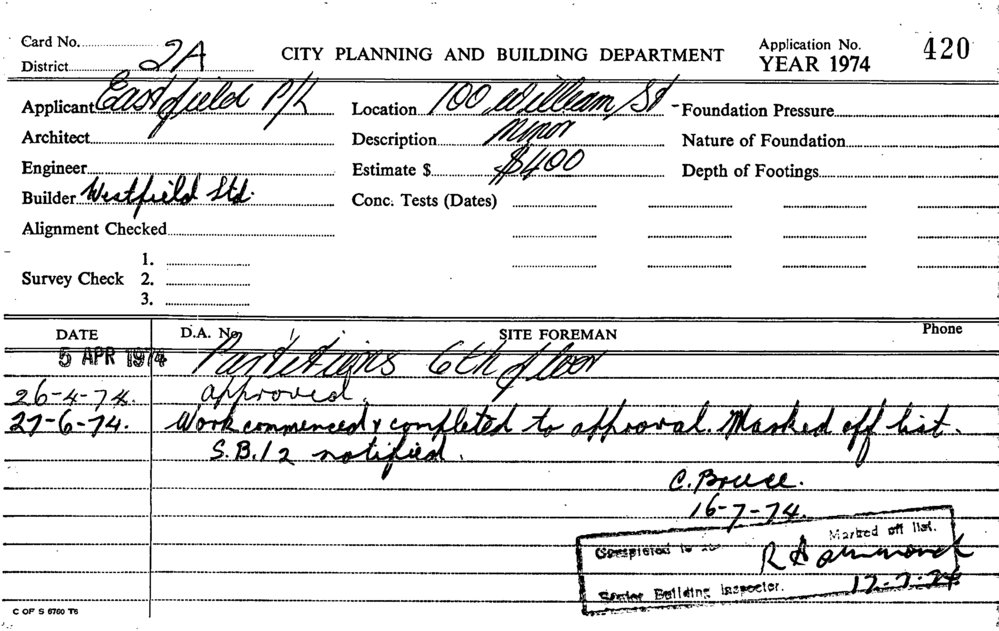 Card No.
District 2A
CITY PLANNING AND BUILDING DEPARTMENT
Application No. 420
YEAR 1974
Applicant Eastfield P/L
Location 100 William St
Foundation Pressure
Architect
Description Minor
Nature of Foundation
Engineer
Estimate $ $400
Depth of Footings
Builder Westfield Ltd.
Conc. Tests (Dates)
Alignment Checked
Survey Check 1.
2.
3.
DATE D.A. No SITE FOREMAN Phone
5 APR 1974 Partitions 6th floor
26-4-74. approved.
27-6-74. Work commenced & completed to approval. Marked off list.
S.B.I 2 notified.
C. Bruce.
16-7-74.
Marked off list.
Completed
Senior Building Inspector. 17-7-74
C OF S 6760 T6